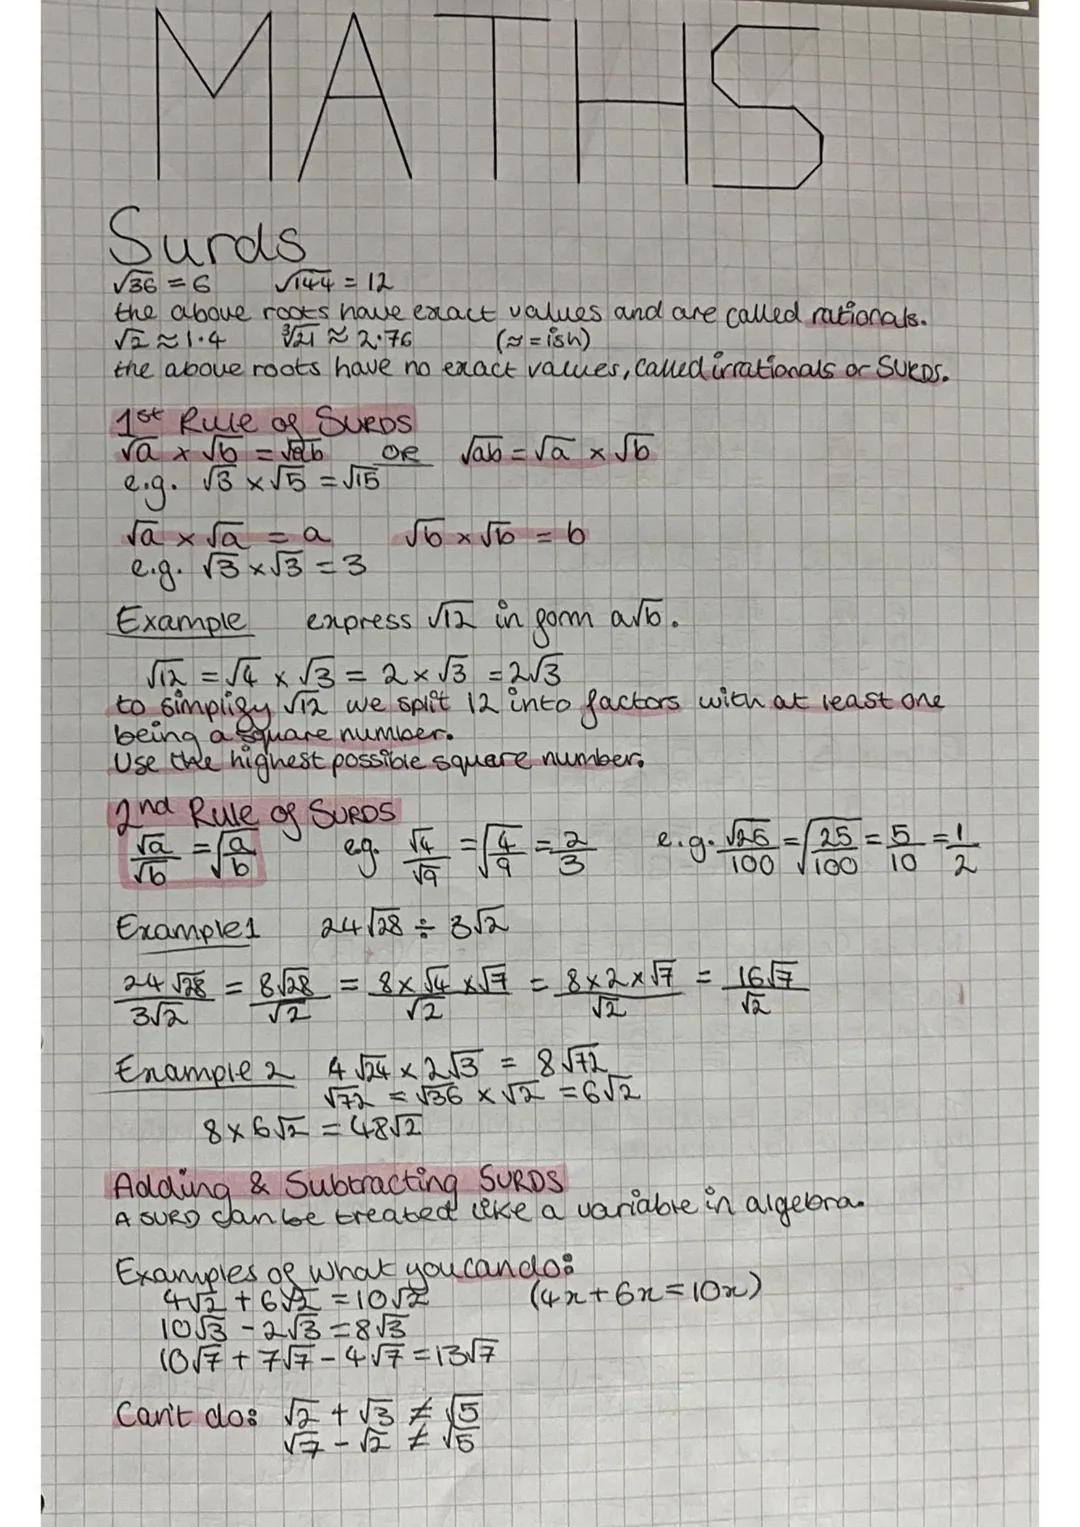 MATHS
Surds
√36 = 6 √144 = 12
the above roots have exact values and are called rationals.
√2 ≈ 1.4 ∛21 ≈ 2.76 (≈ = ish)
the above roots have no exact values, called irrationals or SURDS.
1st Rule of SURDS
√a × √b = √ab OR √ab = √a × √b
e.g. √3 × √5 = √15
√a × √a = a √b × √b = b
e.g. √3 × √3 = 3
Example express √12 in form a√b.
√12 = √4 × √3 = 2 × √3 = 2√3
to simplify √12 we split 12 into factors with at least one
being a square number.
Use the highest possible square number.
2nd Rule of SURDS
√a/√b = √(a/b) eg. √4/√9 = √(4/9) = 2/3 e.g. √25/100 = √(25/100) = 5/10 = 1/2
Example 1 24√28 ÷ 3√2
24√28/3√2 = 8√28/√2 = 8×√4×√7/√2 = 8×2×√7/√2 = 16√7/√2
Example 2 4√24 × 2√3 = 8√72
√72 = √36 × √2 = 6√2
8 × 6√2 = 48√2
Adding & Subtracting SURDS
A SURD can be treated like a variable in algebra.
Examples of what you can do:
4√2 + 6√2 = 10√2 (4x + 6x = 10x)
10√3 - 2√3 = 8√3
10√7 + 7√7 - 4√7 = 13√7
Can't do: √2 + √3 ≠ √5
√7 - √2 ≠ √5